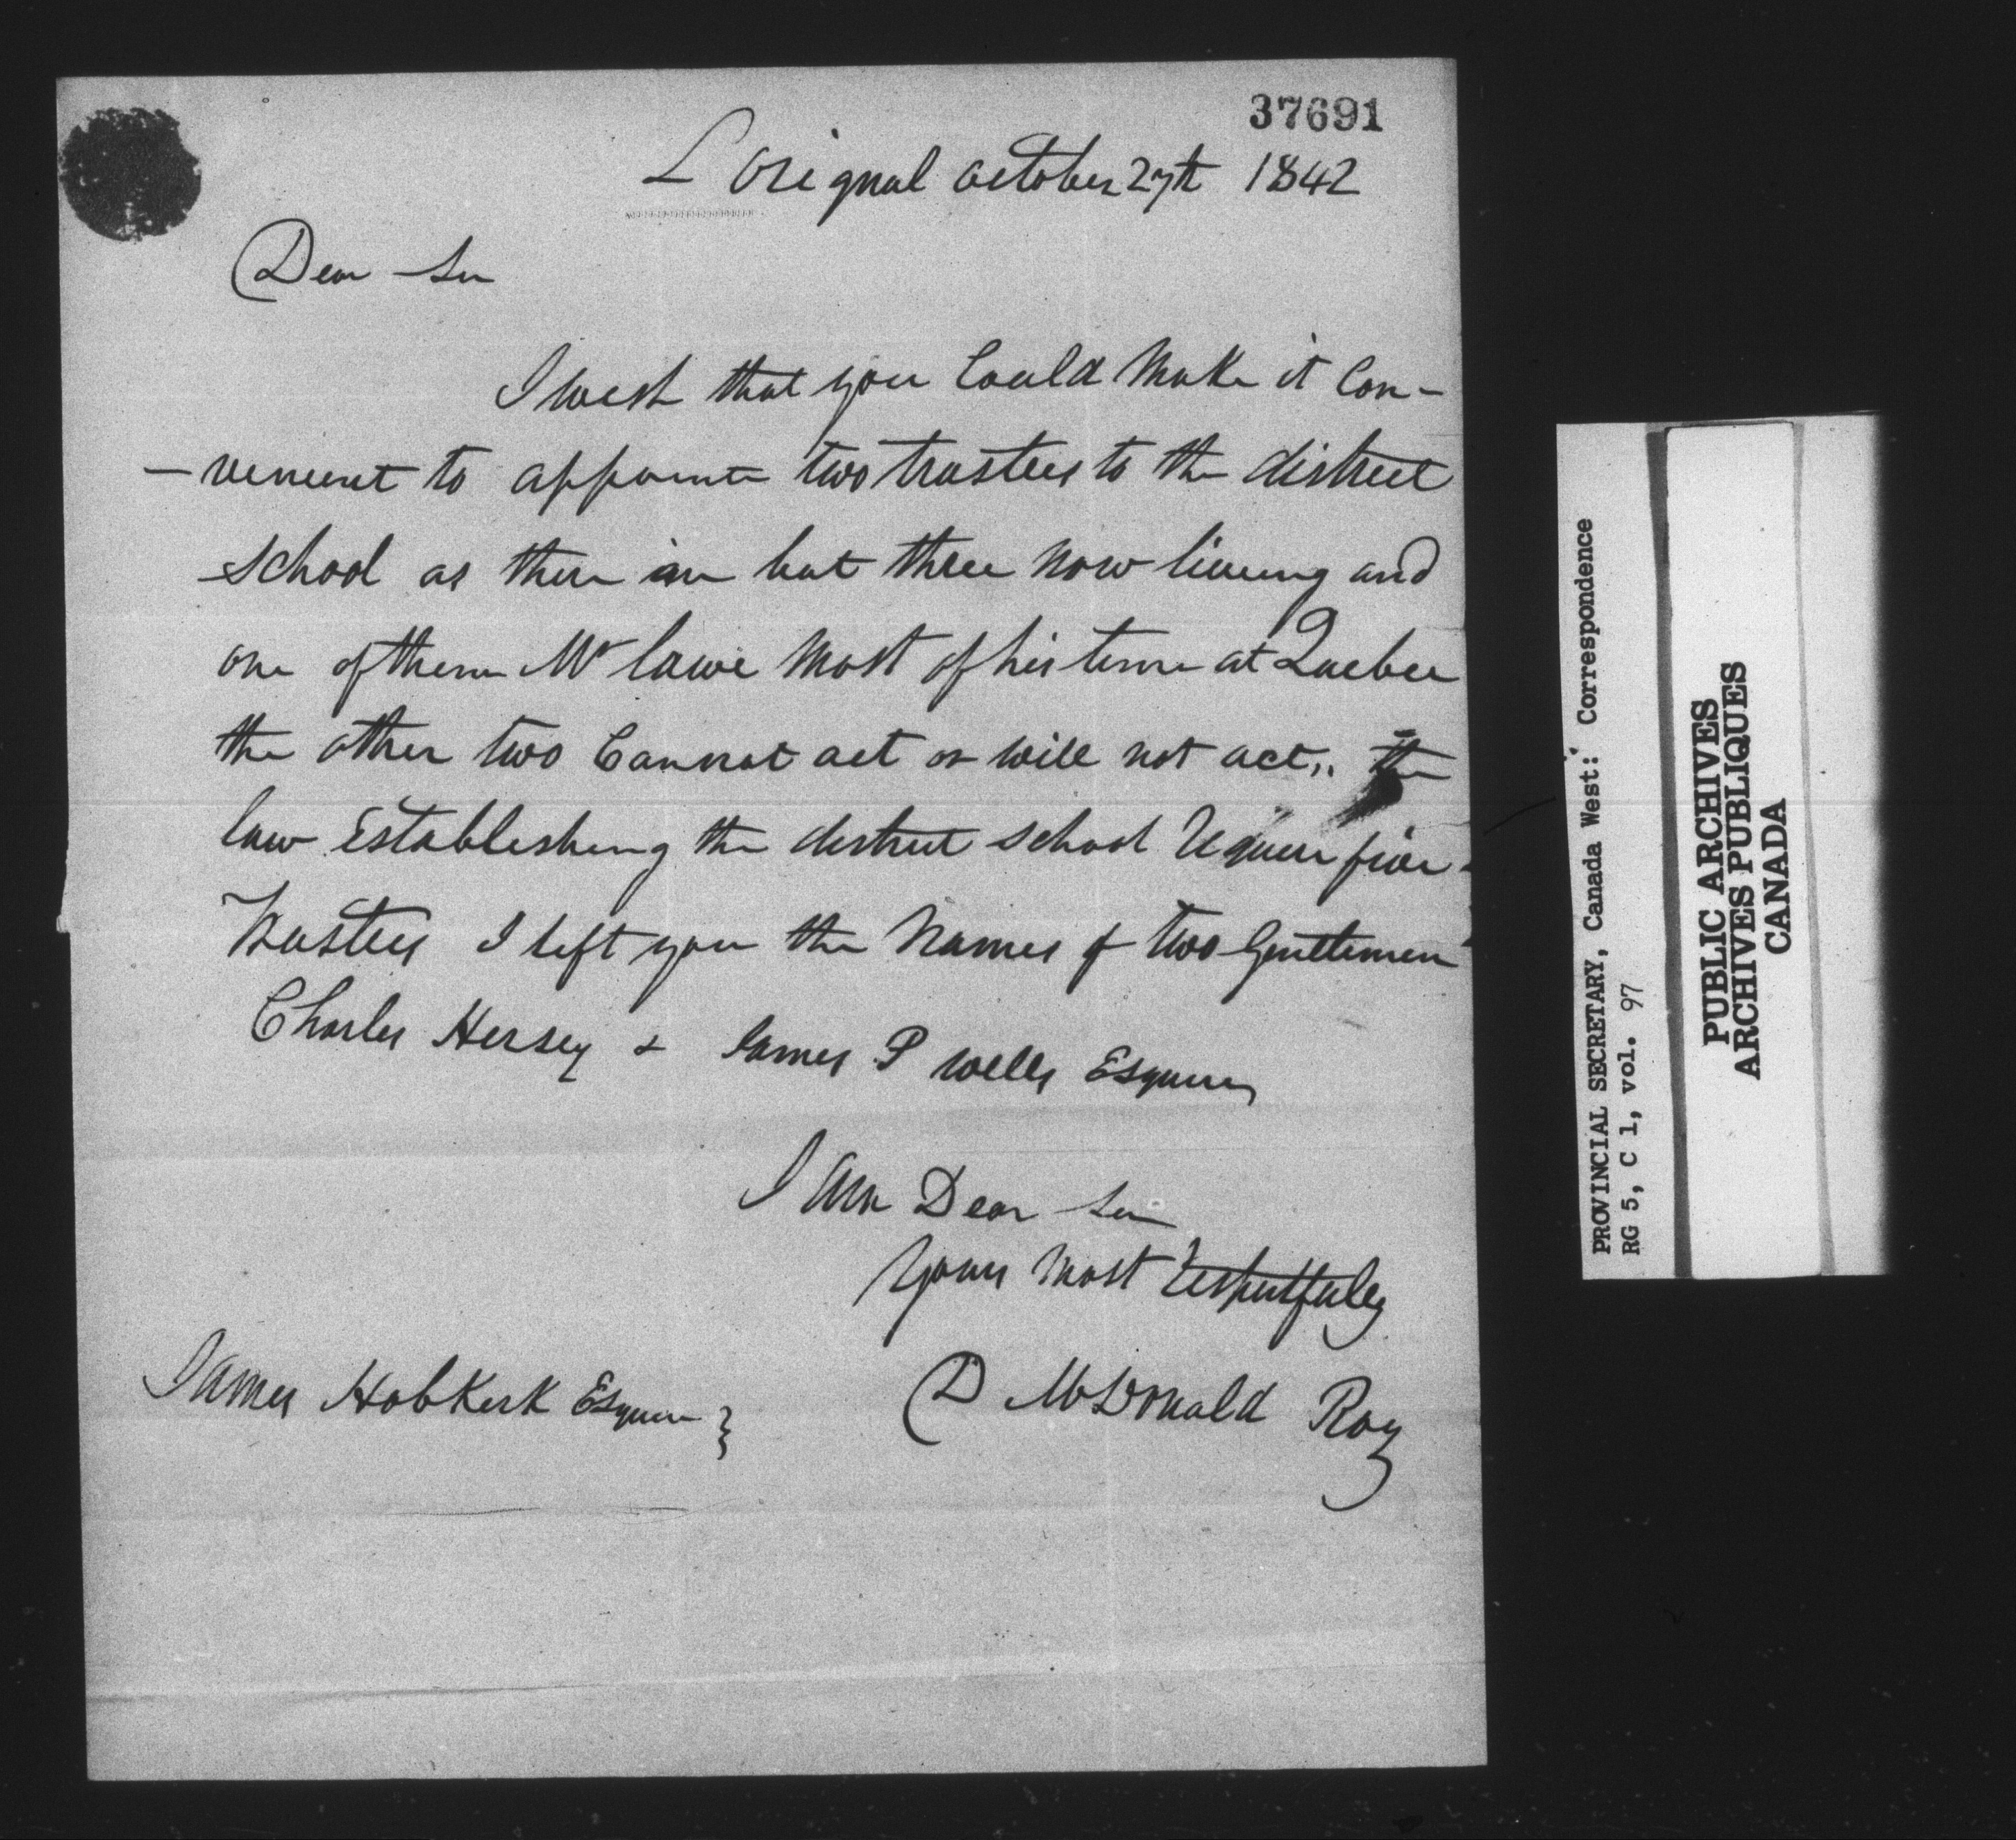 37691
L Orignal October 27th 1842
Dear Sir
I wish that you Could Make it Con-
-venient to appoint two trustees to the district
School as there are but three now living and
one of them Mr Lawe Most of his time at Quebec
the other two Cannot act or will not act,. the
law Establishing the district school Require five
Trustees I left you the Names of two Gentlemen
Charles Hersey & James P wells Esquires
I Am Dear Sir
Yours Most Respectfuley
James Hobkerk Esquire }
D McDonald Roy
PROVINCIAL SECRETARY, Canada West: Correspondence
RG 5, C 1, vol. 97
PUBLIC ARCHIVES
ARCHIVES PUBLIQUES
CANADA